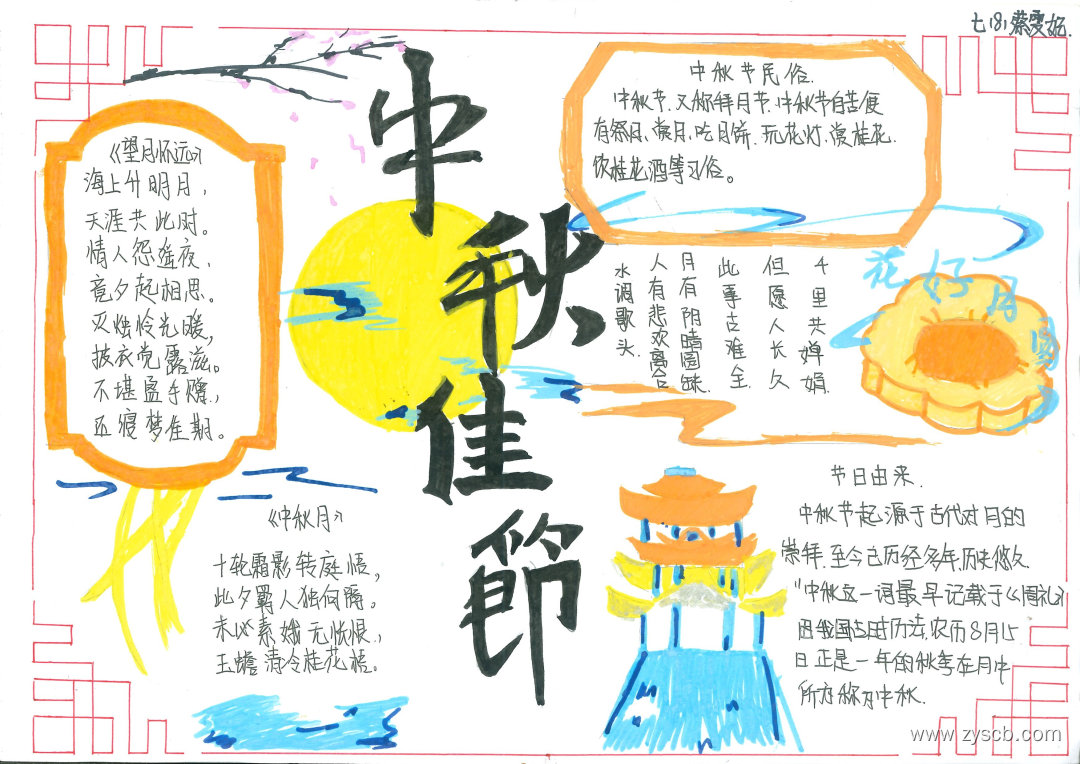 七(8)蔡雯妃.
中秋佳節
《望月怀远》
海上升明月，
天涯共此时。
情人怨遥夜，
竟夕起相思。
灭烛怜光暖，
披衣觉露滋。
不堪盈手赠，
还寝梦佳期。
中秋节民俗.
中秋节.又称拜月节.中秋节自苦便
有祭月、赏月、吃月饼、玩花灯、赏桂花、
饮桂花酒等习俗。
水调歌头.
人有悲欢离合
月有阴晴圆缺.
此事古难全.
但愿人长久
千里共婵娟.
花好月圆
《中秋月》
十轮霜影转庭梧，
此夕羁人独向隅。
未必素娥无怅恨，
玉蟾清冷桂花孤。
节日由来.
中秋节起源于古代对月的
崇拜.至今已历经多年.历史悠久
"中秋这一词最早记载于《周礼》
因我国古时历法.农历8月15
日正是一年的秋季在月中
所为称为中秋.
www.zyscb.com